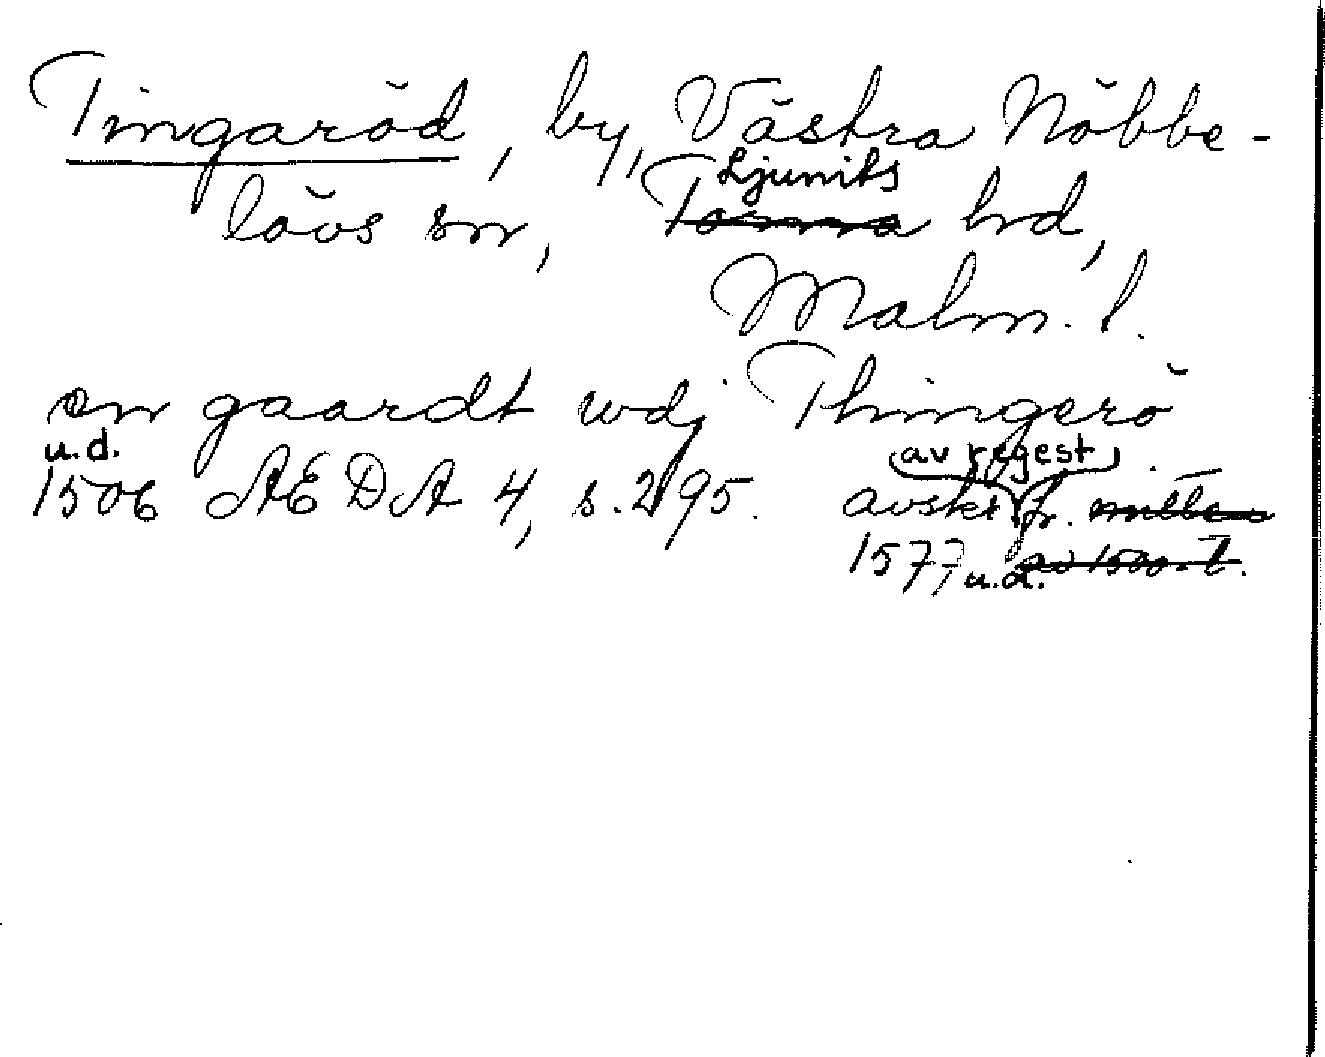 Tingaröd, by, Västra Nöbbe-
Ljunits
lövs sn, Tomma hrd,
Malm. l.
en gaardt wdj Thingerö
u.d. av regest
1506 ÆDA 4, s. 295. avskr fr. mitten
1577 u.d. av 1500-t.